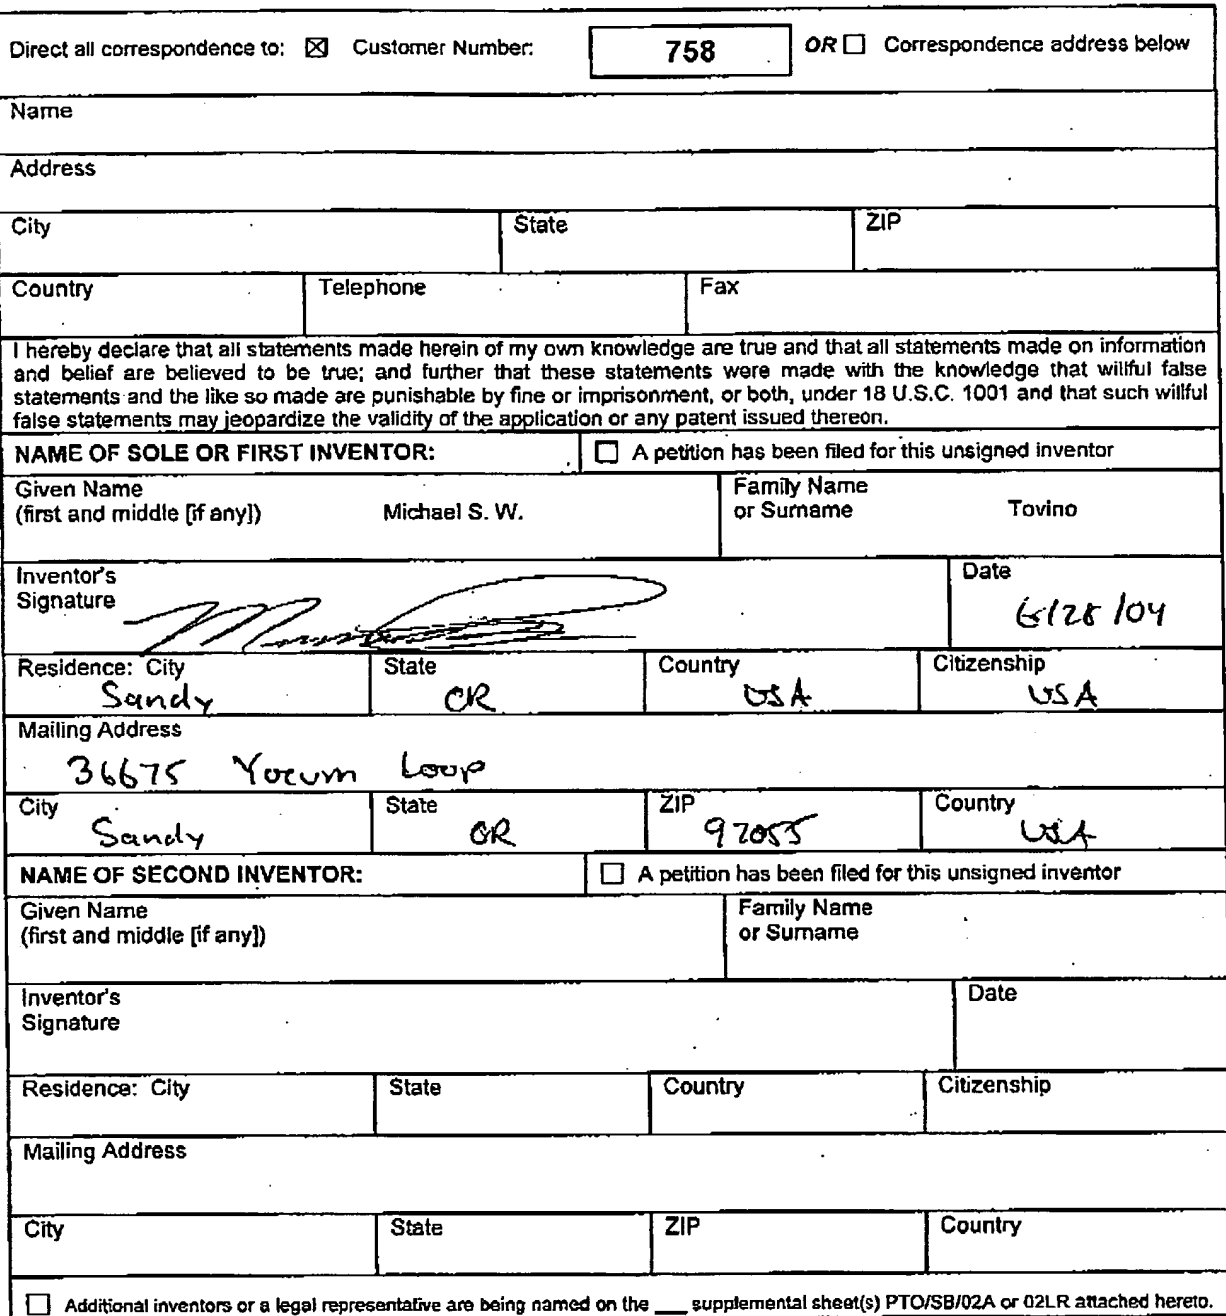 Direct all correspondence to: ☒ Customer Number: 758 OR ☐ Correspondence address below
Name
Address
City State ZIP
Country Telephone Fax
I hereby declare that all statements made herein of my own knowledge are true and that all statements made on information
and belief are believed to be true; and further that these statements were made with the knowledge that willful false
statements and the like so made are punishable by fine or imprisonment, or both, under 18 U.S.C. 1001 and that such willful
false statements may jeopardize the validity of the application or any patent issued thereon.
NAME OF SOLE OR FIRST INVENTOR: ☐ A petition has been filed for this unsigned inventor
Given Name Family Name
(first and middle [if any]) Michael S. W. or Surname Tovino
Inventor's Date
Signature 6/28/04
Residence: City State Country Citizenship
Sandy OR USA USA
Mailing Address
36675 Yocum Loop
City State ZIP Country
Sandy OR 97055 USA
NAME OF SECOND INVENTOR: ☐ A petition has been filed for this unsigned inventor
Given Name Family Name
(first and middle [if any]) or Surname
Inventor's Date
Signature
Residence: City State Country Citizenship
Mailing Address
City State ZIP Country
☐ Additional inventors or a legal representative are being named on the ___ supplemental sheet(s) PTO/SB/02A or 02LR attached hereto.